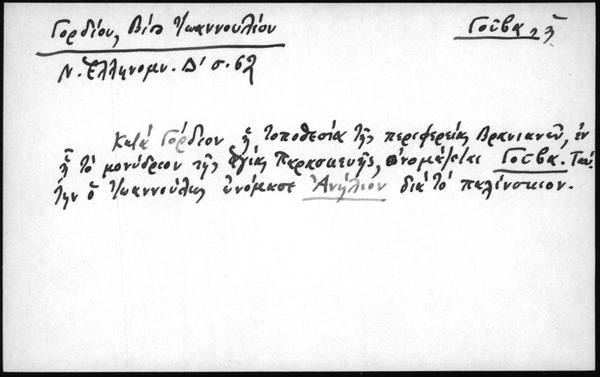 Γορδίου, Βίος Ἰωαννουλίου
Γοῦβα
Ν. Ἑλληνομν. Δ' σ. 62
Κατά Γόρδιον ἡ τοποθεσία τῆς περιφερείας Βρανιανῶν, ἐν
ᾗ τό μονύδριον τῆς Ἁγίας Παρασκευῆς, ὀνομάζεται Γοῦβα. Ταύ-
την ὁ Ἰωαννούλιος ὠνόμασε Ἀνήλιον διά τό παλίνσκιον.